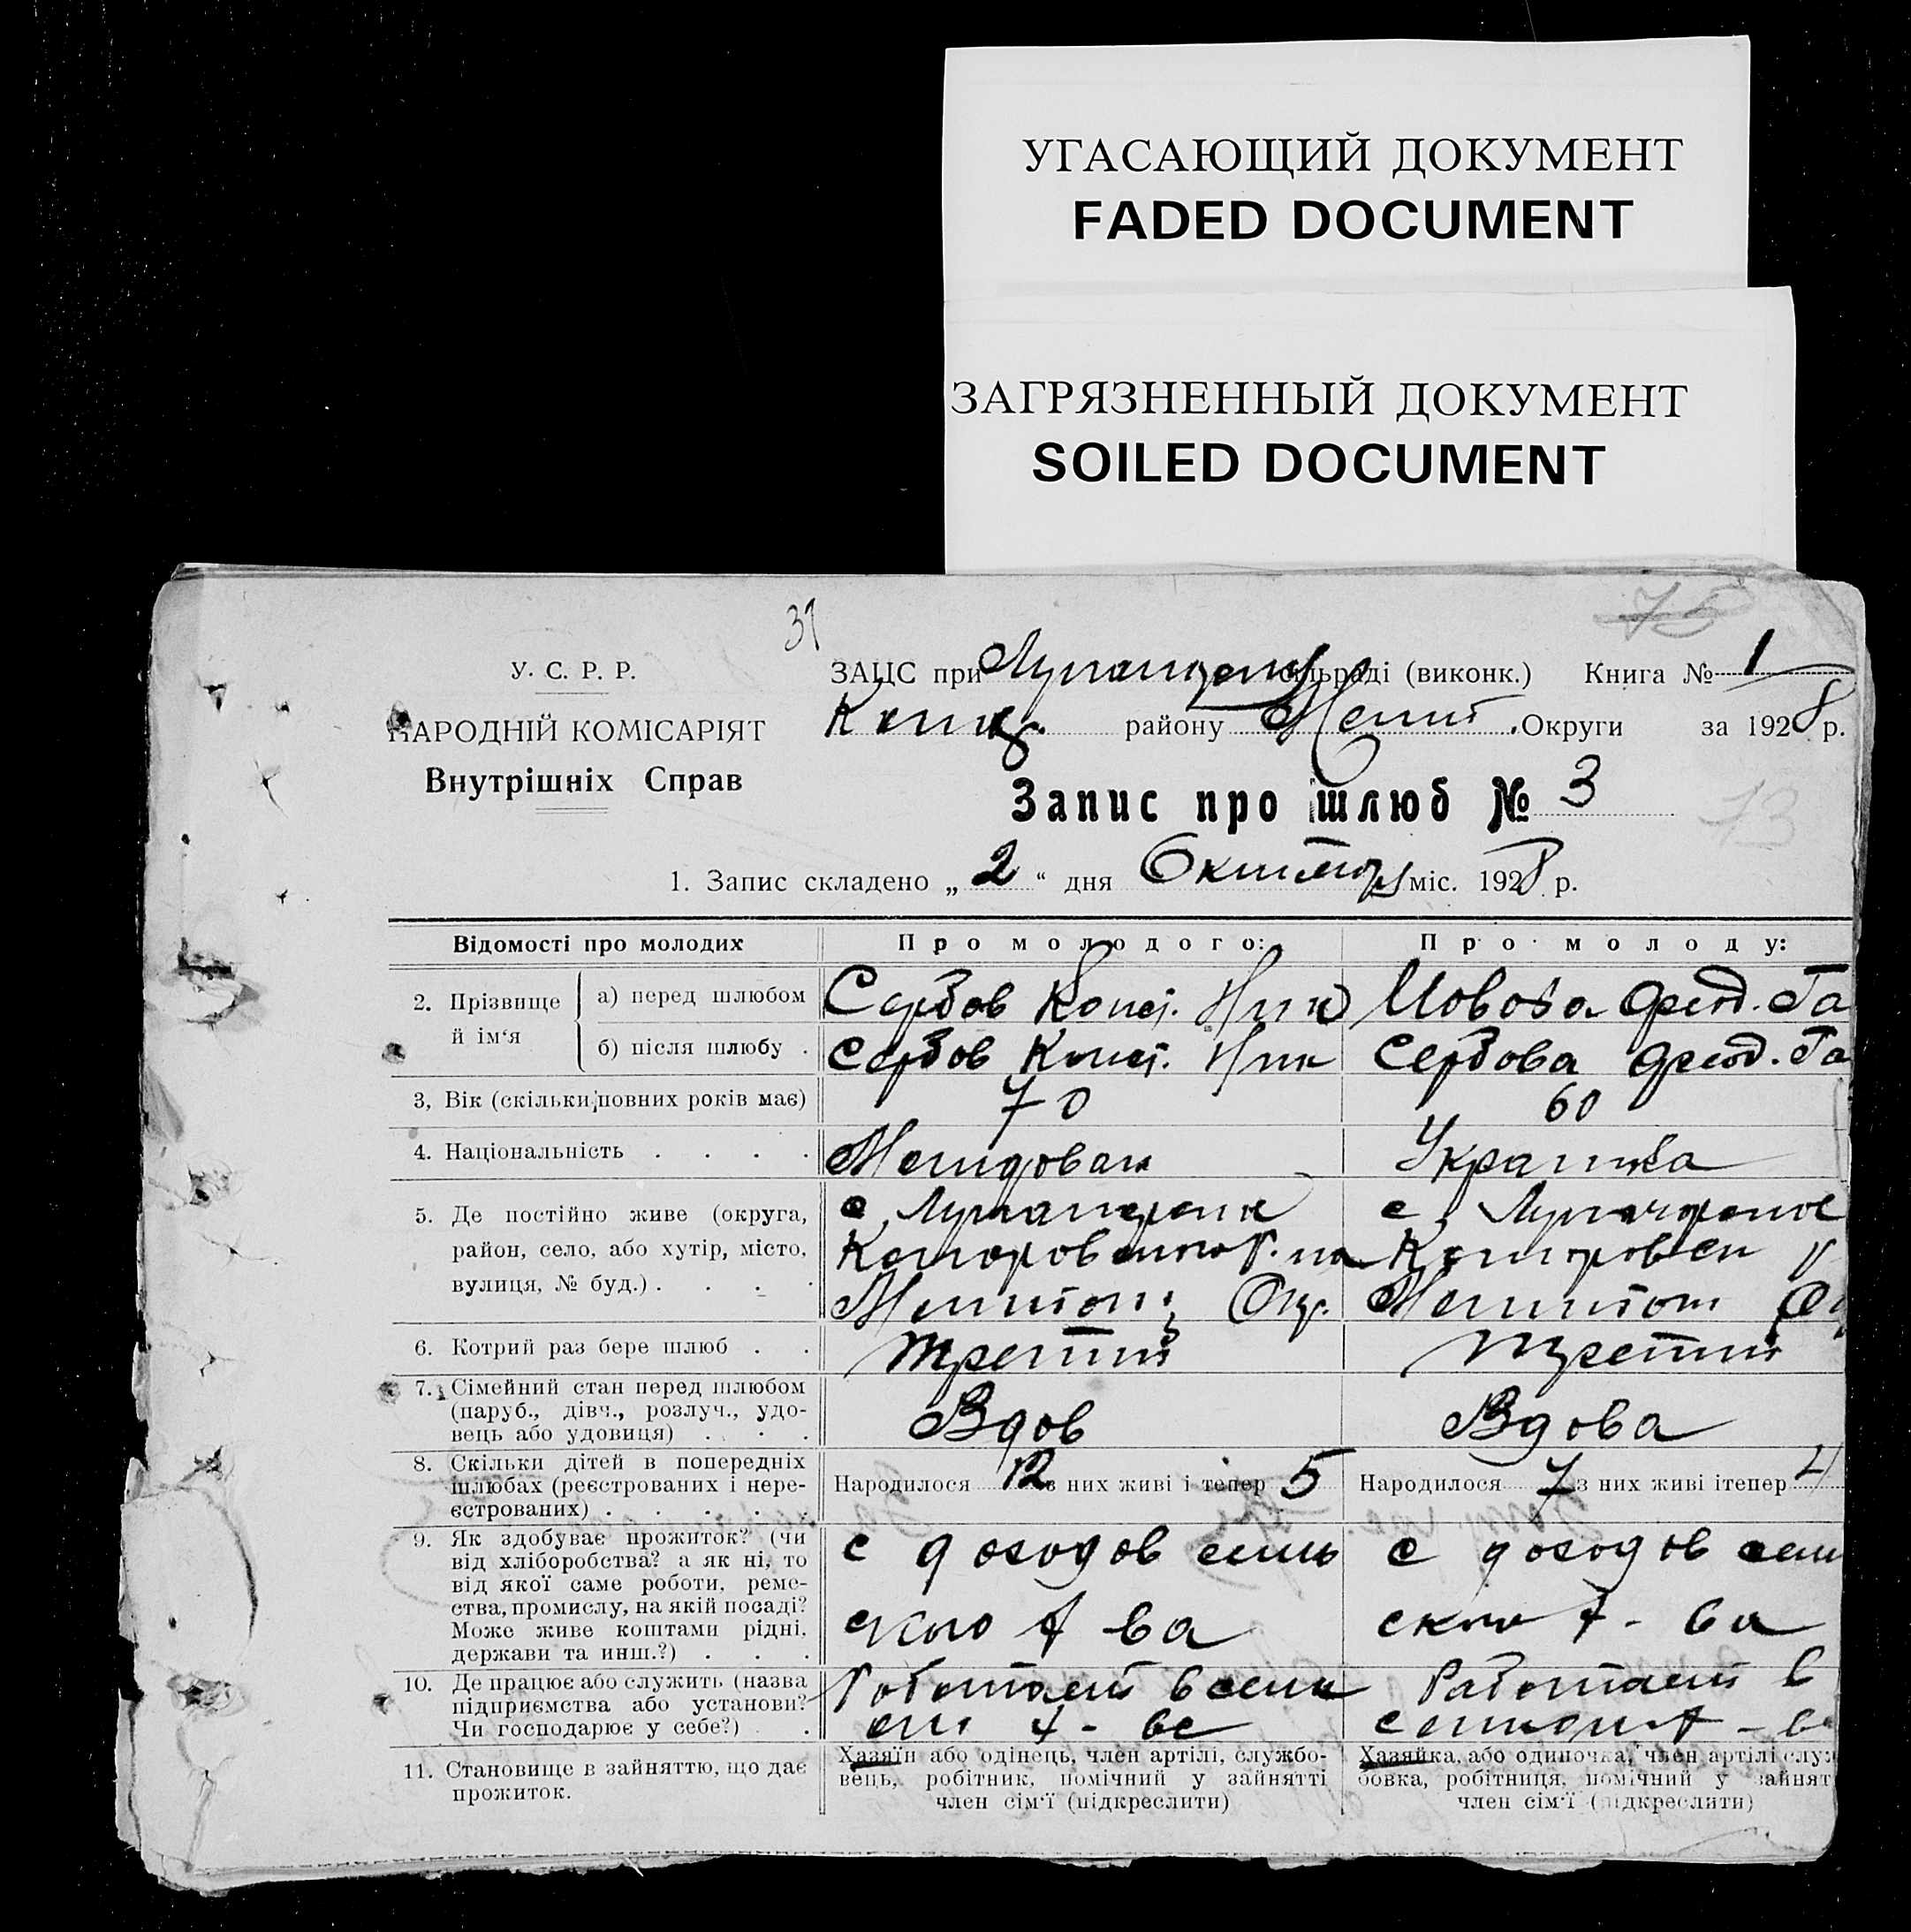 УГАСАЮЩИЙ ДОКУМЕНТ
FADED DOCUMENT
ЗАГРЯЗНЕННЫЙ ДОКУМЕНТ
SOILED DOCUMENT
75
31
У. С. Р. Р.
НАРОДНІЙ КОМІСАРІЯТ
Внутрішніх Справ
ЗАЦС при сільраді (виконк.) Книга № 1
району Мелит. Округи за 1928 р.
Запис про шлюб № 3
73
1. Запис складено „ 2 “ дня Октября міс. 1928 р.
Відомості про молодих
Про молодого:
Про молоду:
2. Прізвище й ім‘я
а) перед шлюбом
Сербов Конст. Ник
Иовова Феод. Га
б) після шлюбу .
Сербов Конст. Ник
Сербова Феод. Га
3, Вік (скільки повних років має)
70
60
4. Національність . . . .
Молдован
5. Де постійно живе (округа,
район, село, або хутір, місто,
вулиця, № буд.) . . . .
с.
Мелитоп. Окр.
с.
Мелитоп
6. Котрий раз бере шлюб . .
Третий
Третий
7. Сімейний стан перед шлюбом
(паруб., дівч., розлуч., удо-
вець або удовиця) . . .
Вдов
Вдова
8. Скільки дітей в попередніх
шлюбах (реєстрованих і нере-
єстрованих) . . . . .
Народилося 12 з них живі і тепер 5
Народилося 7 з них живі ітепер 4
9. Як здобуває прожиток? (чи
від хліборобства? а як ні, то
від якої саме роботи, реме-
ства, промислу, на якій посаді?
Може живе коштами рідні,
держави та инш.?) . . .
с доходов сель
ского х-ва
с доходов сель
ского х-ва
10. Де працює або служить (назва
підприємства або установи?
Чи господарює у себе?) . .
Работает в сель
ск х-ве
Работает в
11. Становище в зайняттю, що дає
прожиток.
Хазяїн або одінець, член артілі, службо-
вець, робітник, помічний у зайнятті
член сім‘ї (підкреслити)
Хазяйка, або одиночка, член артілі служ
бовка, робітниця, помічний у зайнят
член сім‘ї (підкреслити)